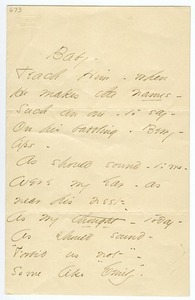 673
Baby -
Teach Him - when
He makes the names -
Such an one - to say -
On his babbling - Berry -
lips -
As should sound - to me -
Were my Ear - as
near his nest -
As my thought - today -
As should sound -
"Forbid us not" -
Some like "Emily".